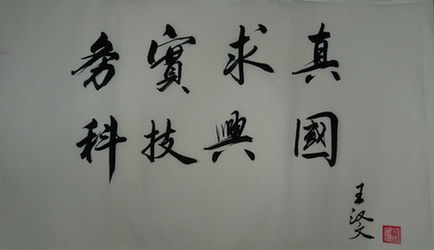 务實求真
科技興國
王汉文